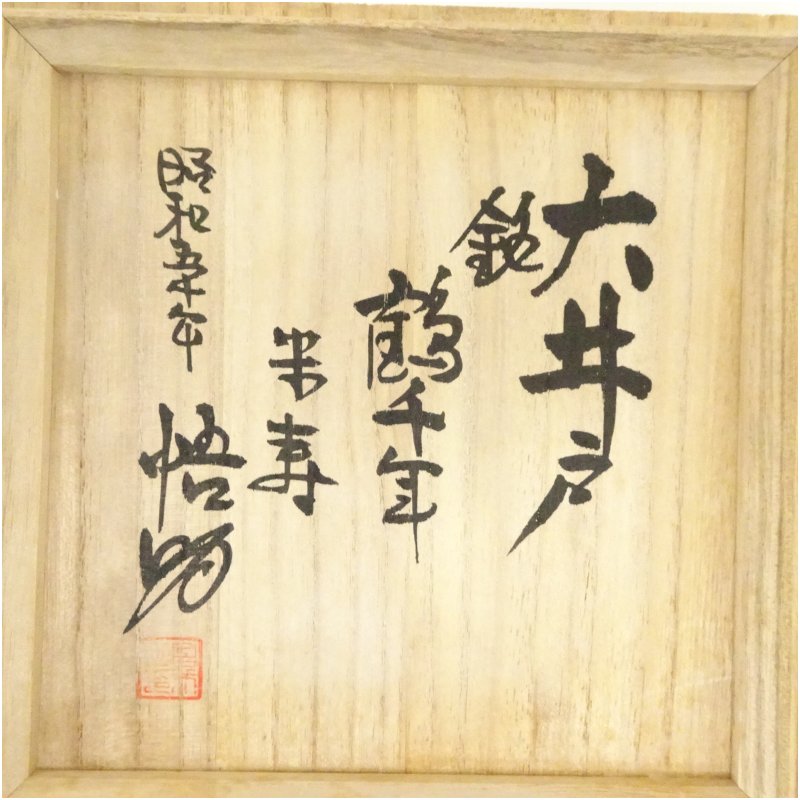 大井戸
銘
鶴千年
米寿
昭和五十年
悟助